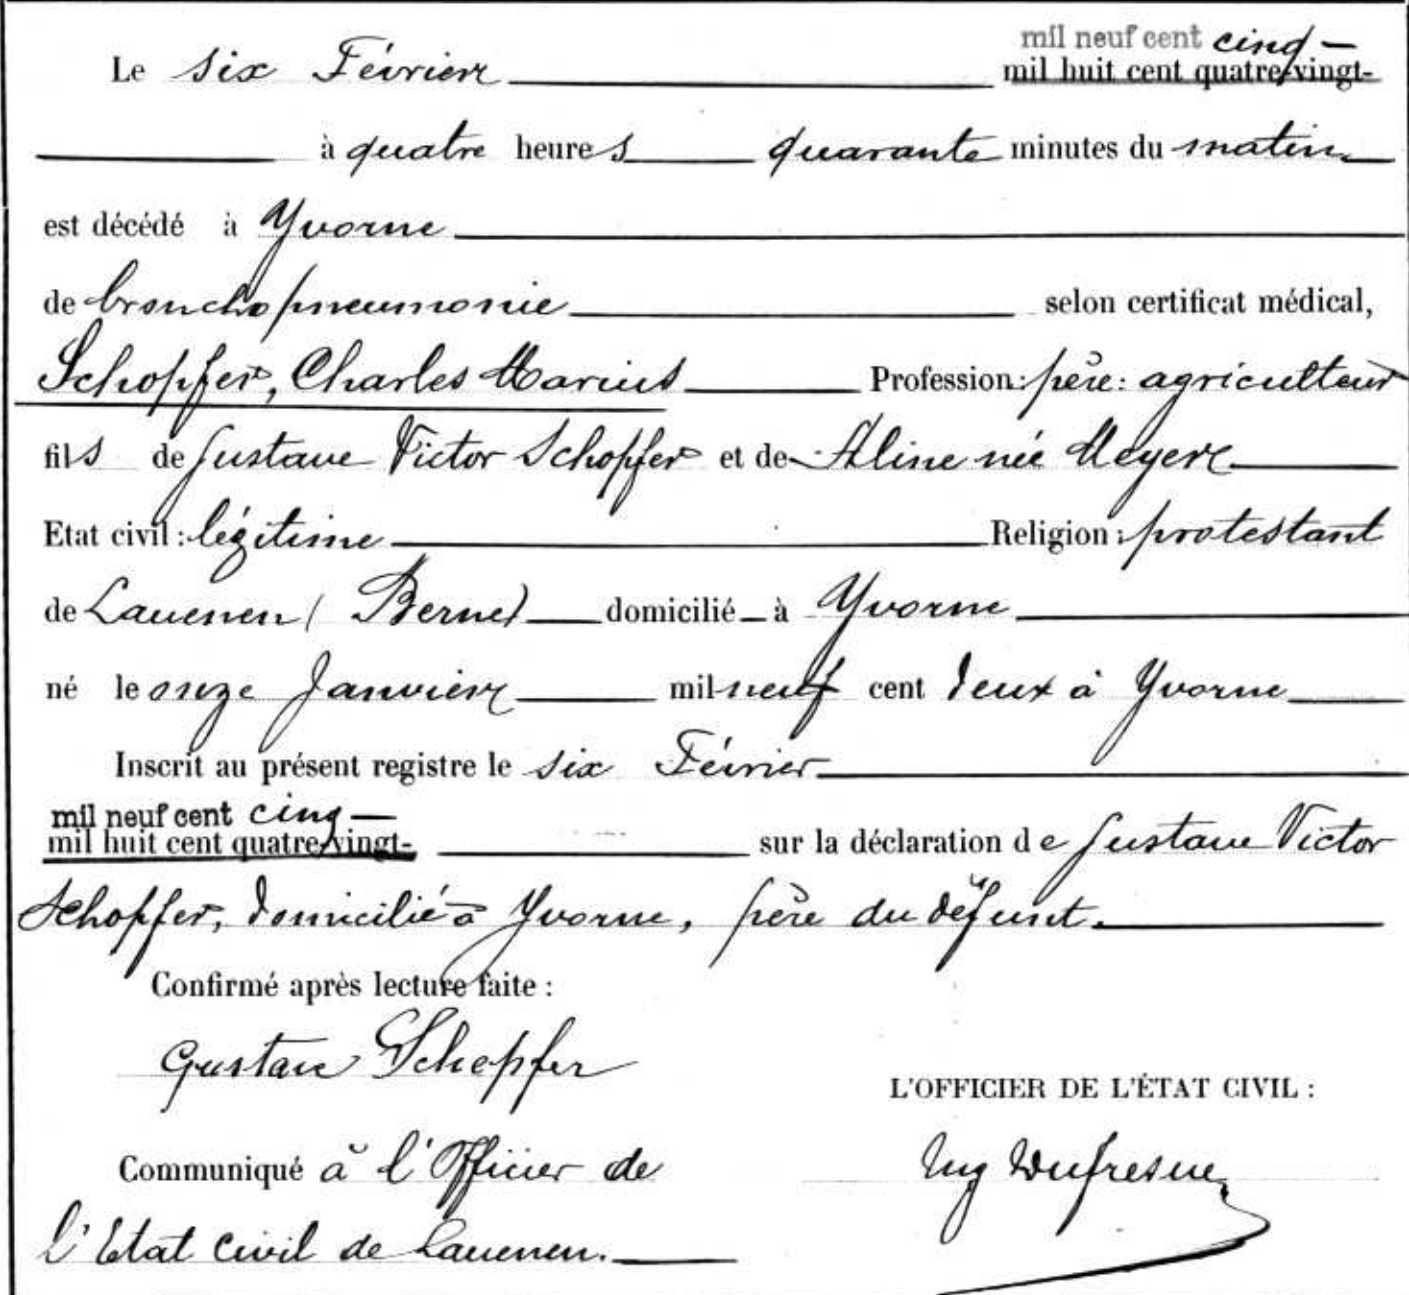 mil neuf cent cinq
Le six Février mil huit cent quatre-vingt-
à quatre heures quarante minutes du matin
est décédé à Yvorne
de bronchopneumonie selon certificat médical,
Schopfer, Charles Marius Profession: père: agriculteur
fils de Gustave Victor Schopfer et de Aline née Meyer
Etat civil: légitime Religion: protestant
de Lauenen (Berne) domicilié à Yvorne
né le onze Janvier mil neuf cent deux à Yvorne
Inscrit au présent registre le six Février
mil neuf cent cinq
mil huit cent quatre-vingt- sur la déclaration de Gustave Victor
Schopfer, domicilié à Yvorne, père du défunt.
Confirmé après lecture faite :
Gustave Schopfer
L'OFFICIER DE L'ÉTAT CIVIL :
Communiqué à l'Officier de Dufresne
l'Etat civil de Lauenen.